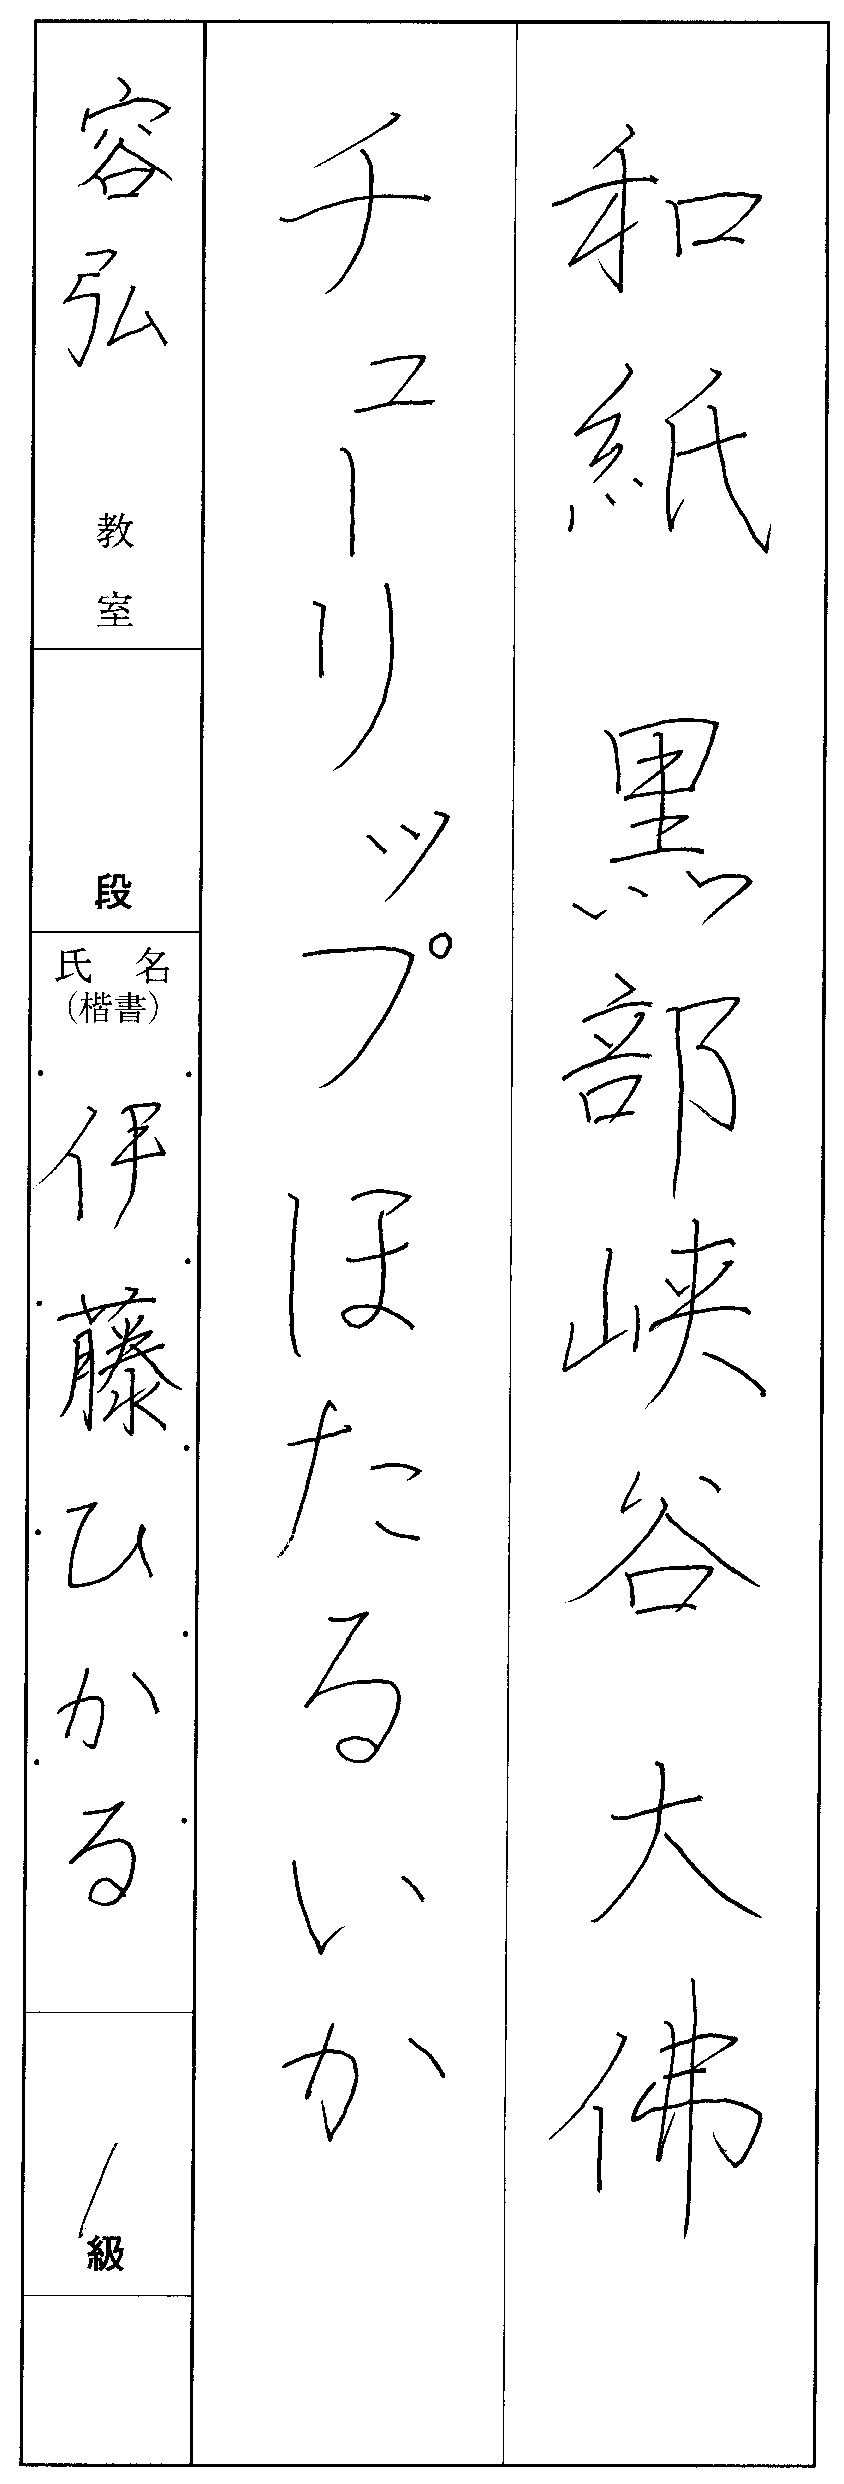 和紙 黒部峡谷 大佛
チューリップ ほたるいか
容弘 教室
段
氏名
(楷書)
伊藤ひかる
1級